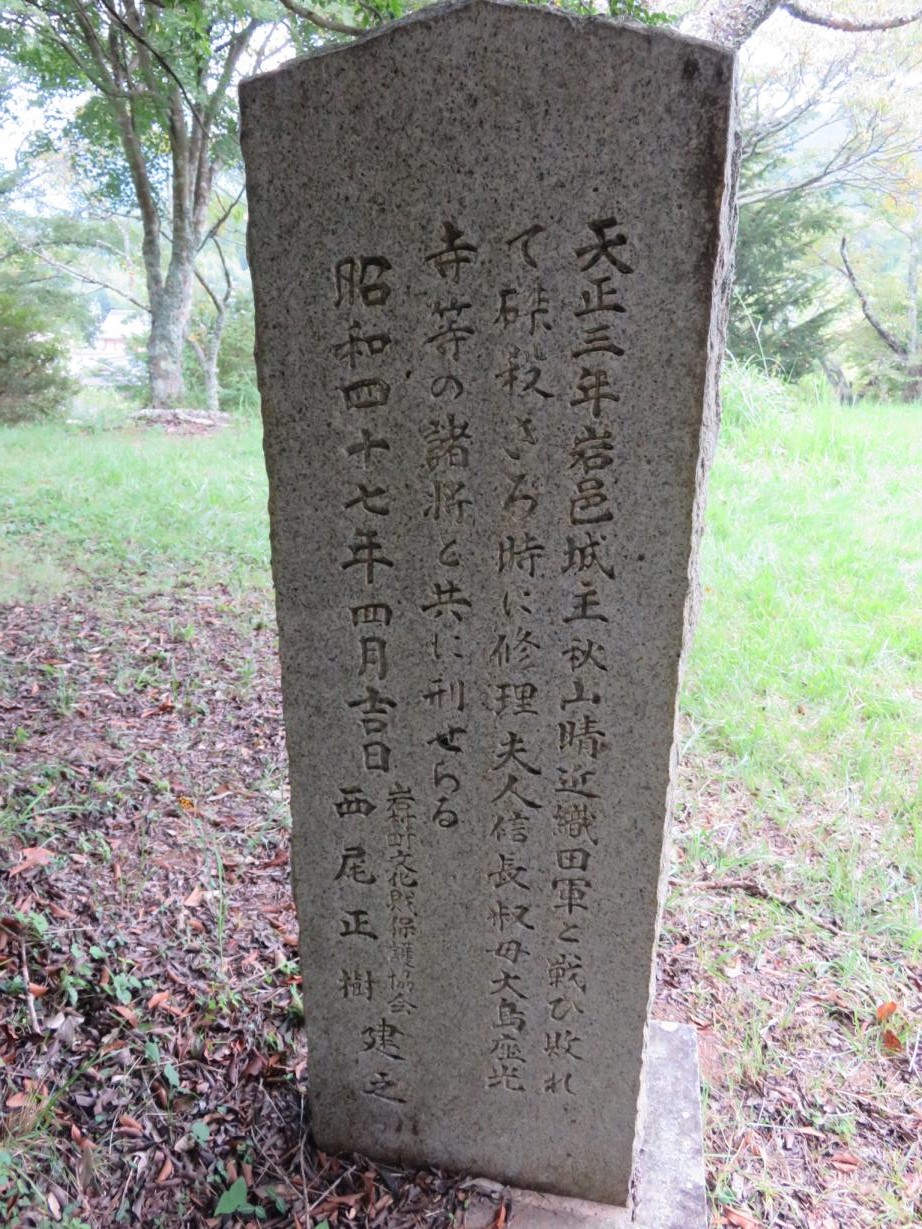 天正三年岩邑城主秋山晴近織田軍と戦ひ敗れ
て磔殺さる時に修理夫人信長叔母大島座光
寺等の諸将と共に刑せらる
昭和四十七年四月吉日
岩村町文化財保護協会
西尾正樹
建之